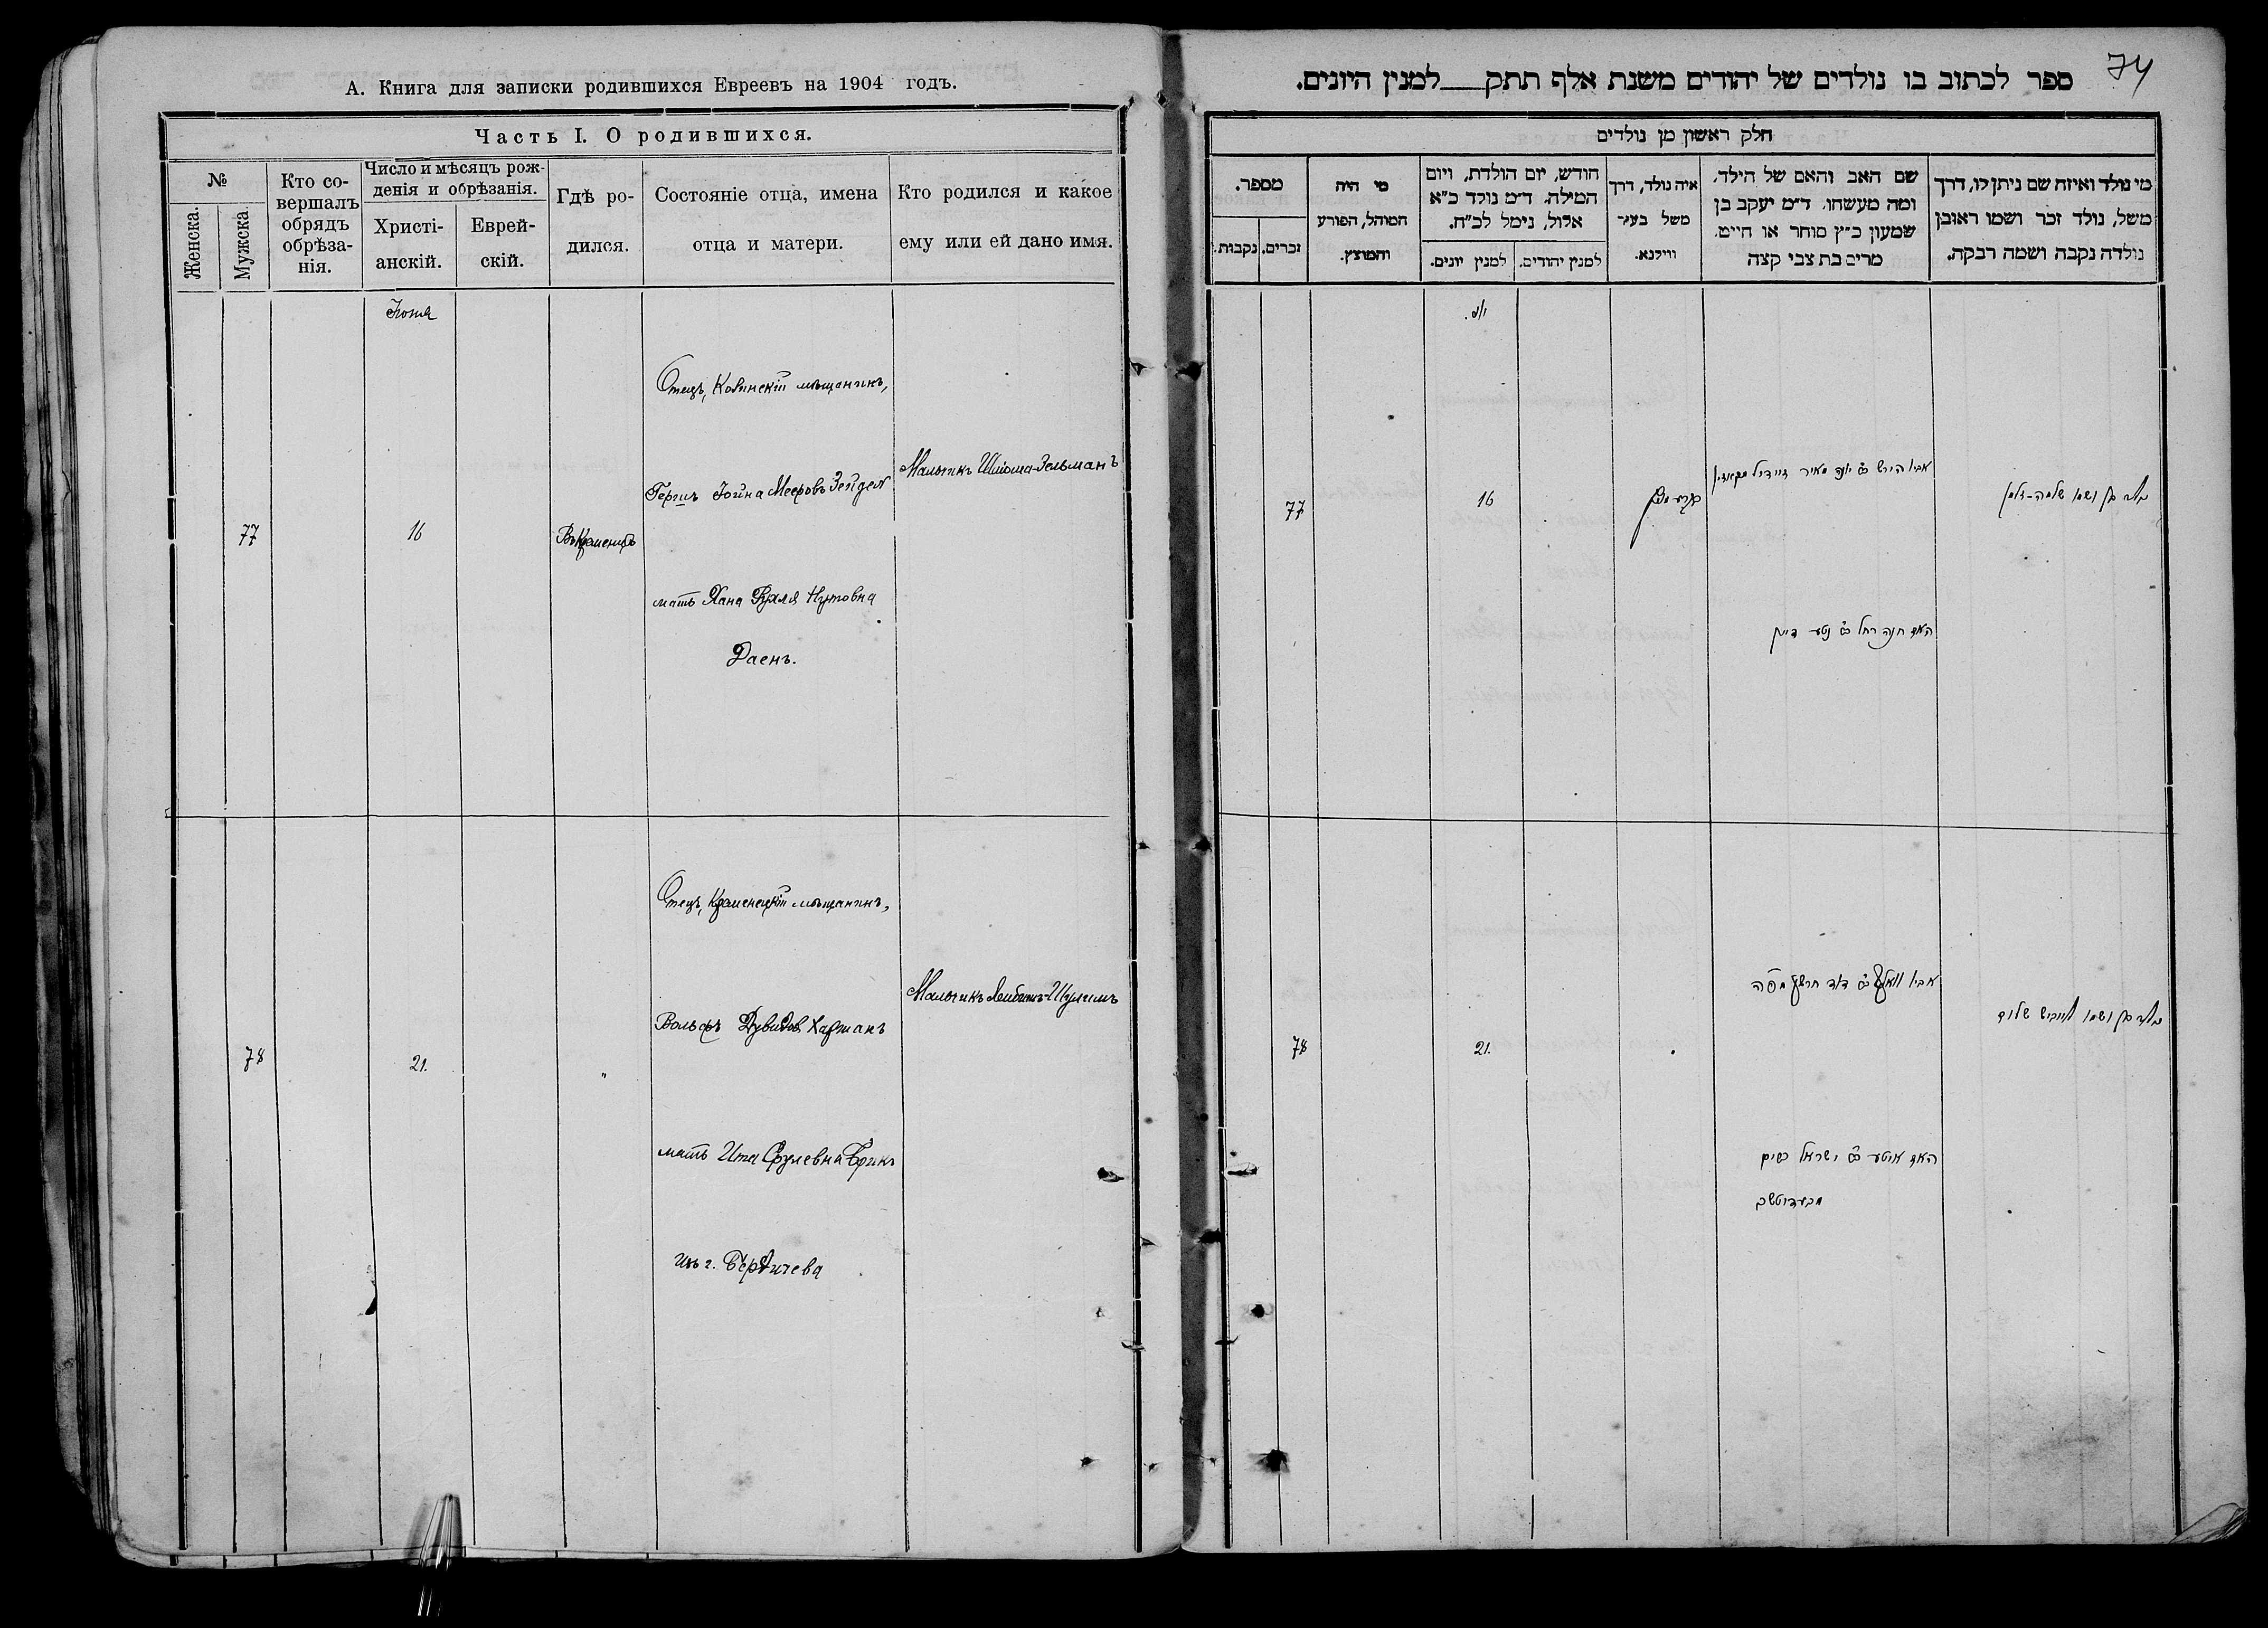 А. Книга для записки родившихся Евреевъ на 1904 годъ.
Часть I. О родившихся.
№
Женска.
Мужска.
Кто со-
вершалъ
обрядъ
обрѣза-
нія.
Число и мѣсяцъ рож-
денія и обрѣзанія.
Христі-
анскій.
Еврей-
скій.
Гдѣ ро-
дился.
Состояніе отца, имена
отца и матери.
Кто родился и какое
ему или ей дано имя.
Іюня
77
16
Отецъ, Ковенскій мѣщанинъ,
Гершъ Іойна Мееровъ Зейдел
мать Хана Рухля Нутовна
Даенъ.
Мальчикъ Шліома-Зельманъ
78
21.
"
Отецъ, Кременецкій мѣщанинъ,
Вольфъ Дувидов Хартакъ
мать Ита Срулевна
изъ г. Бердичева
Мальчикъ Лейбишъ-Шулимъ
74
ספר לכתוב בו נולדים של יהודים משנת אלף תתק למנין היונים.
חלק ראשון מן נולדים
מספר.
נקבות.
זכרים.
מי היה
המוהל, הפורע
והמוצץ.
חודש, יום הולדת, ויום
המילה. ד״מ נולד כ״א
אלול, נימל לכ״ח.
למנין יונים.
למנין יהודים.
איה נולד, דרך
משל בעיר
ווילנא.
שם האב והאם של הילד.
ומה מעשהו. ד״מ יעקב בן
שמעון כ״ץ סוחר או חייט.
מרים בת צבי קצה
מי נולד ואיזה שם ניתן לו, דרך
משל, נולד זכר ושמו ראובן
נולדה נקבה ושמה רבקה.
77
16
אביו הירש ב״ר יונה מאיר זיידיל
האם חנה רחל ב״ר נטע דיין
ושמו שלמה-זלמן
78
21.
אביו וואלף ב״ר דוד
האם איטע ב״ר ישראל
ושמו לייביש שלום